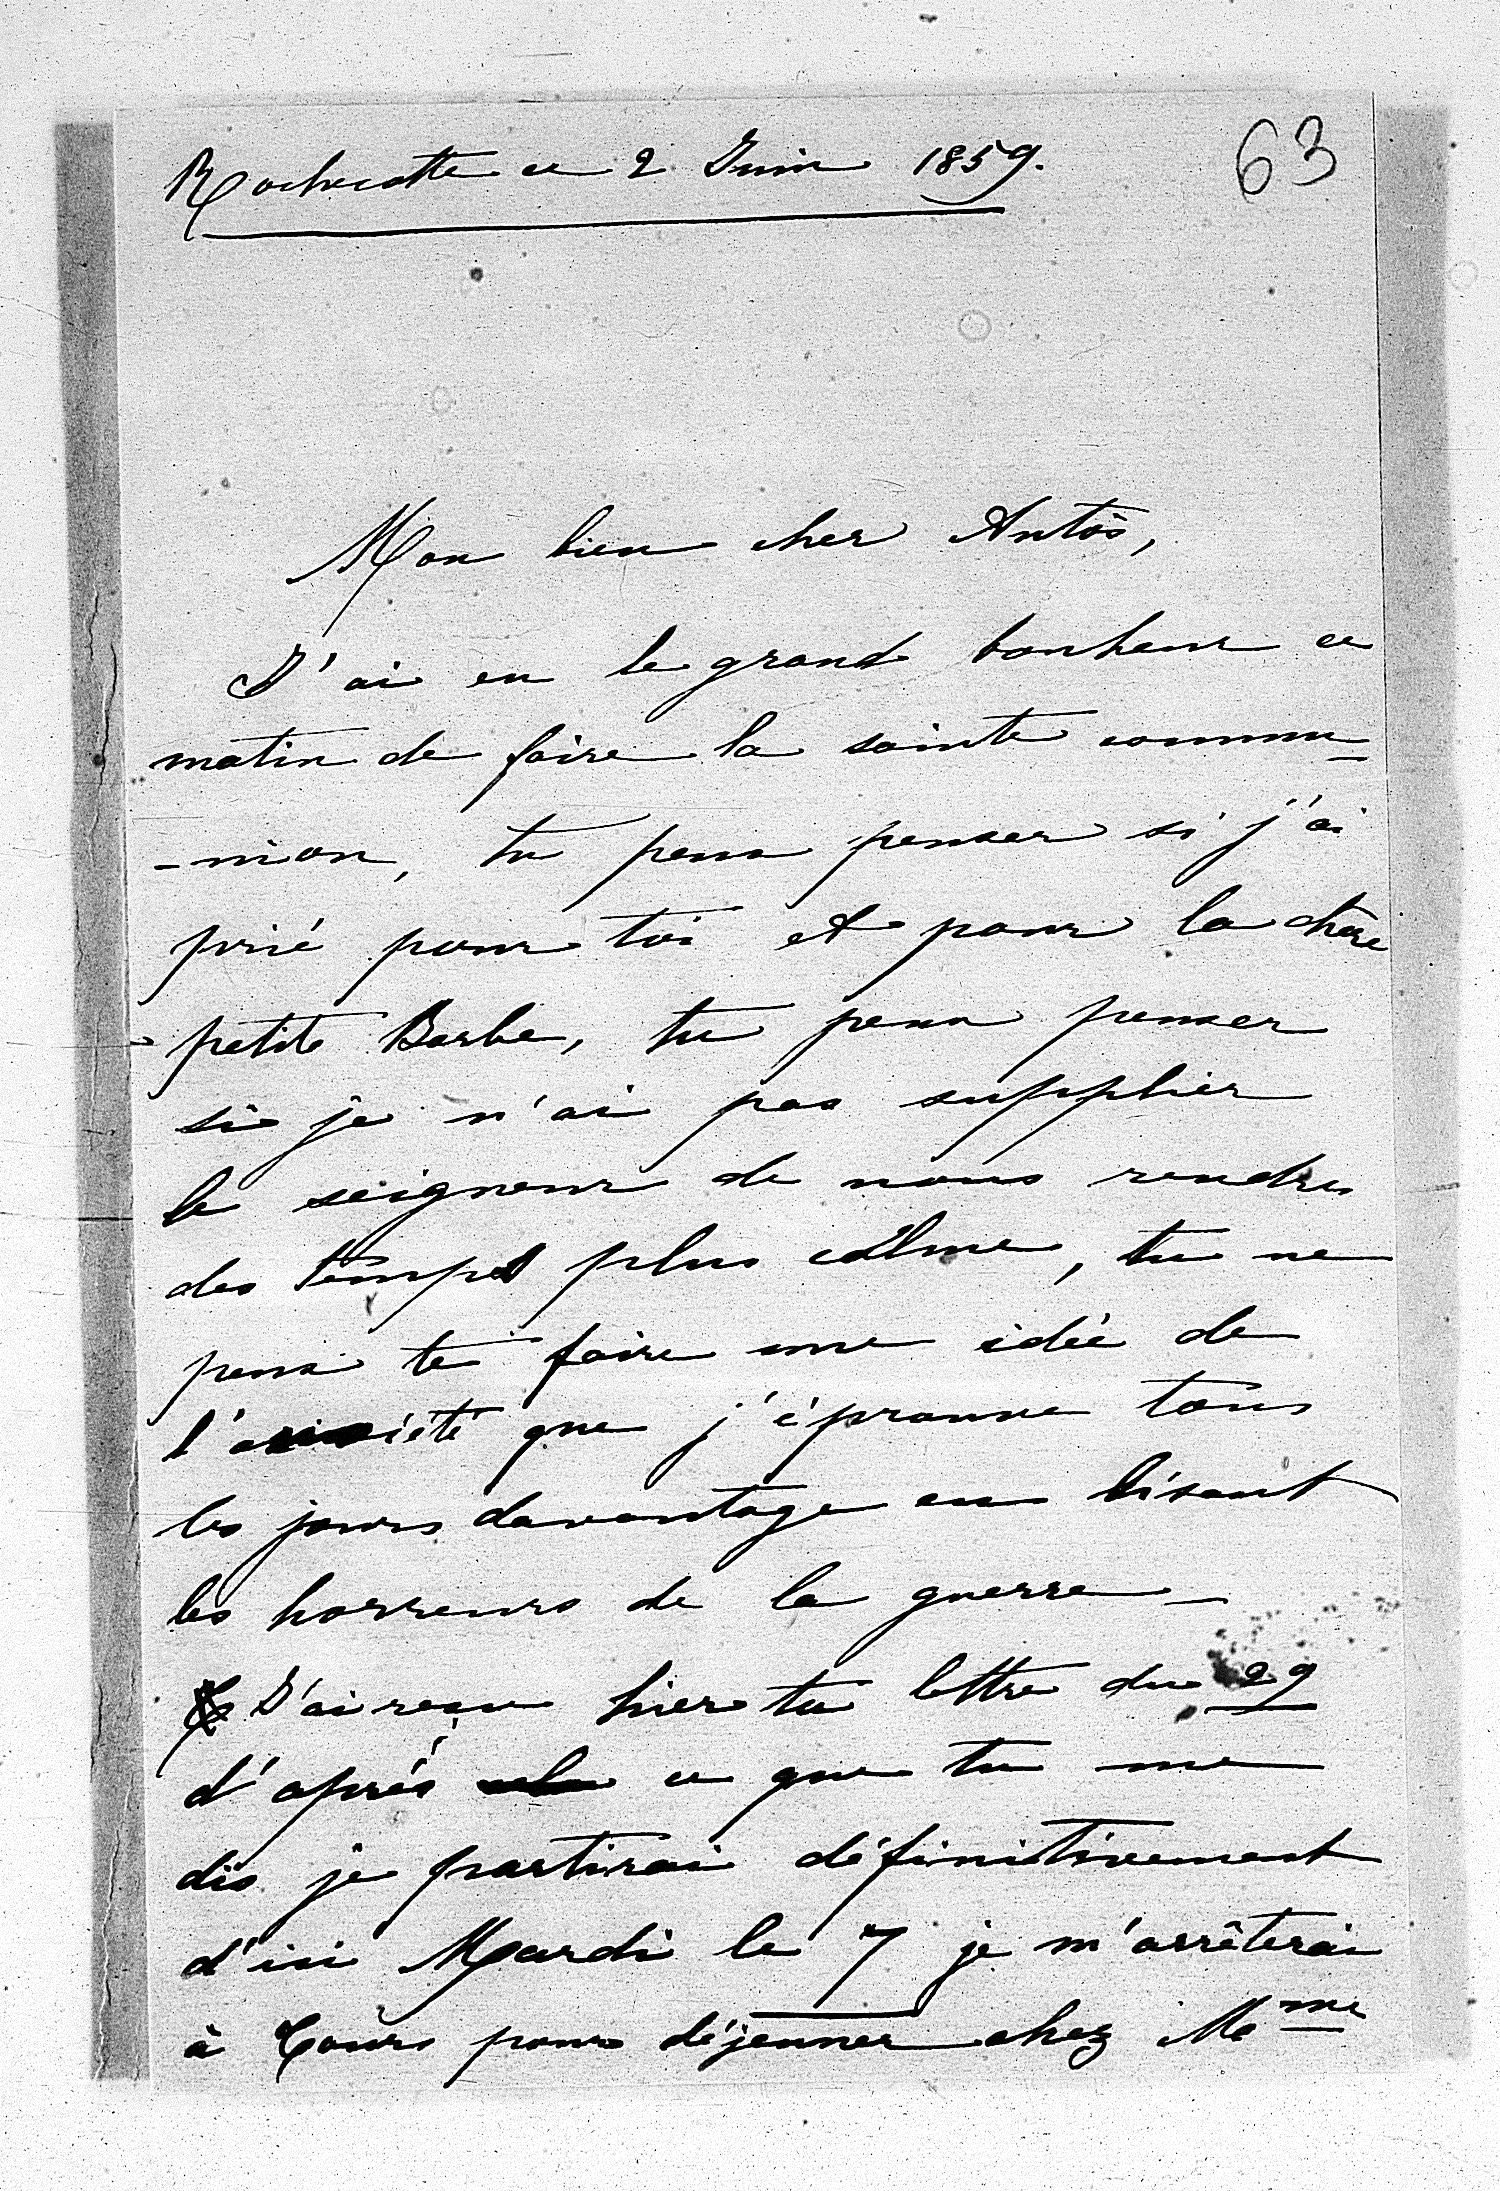 Rochecotte ce 2 Juin 1859.
63
Mon bien cher Antôs,
J'ai eu le grand bonheur ce
matin de faire la sainte commu-
-nion, tu peux penser si j'ai
prié pour toi et pour la chère
petite Barbe, tu peux penser
si je n'ai pas supplier
le seigneur de nous rendre
des temps plus calme, tu ne
peux te faire une idée de
l'anxiété que j'éprouve tous
les jours davantage en lisant
les horreurs de la guerre -
J'ai reçu hier ta lettre du 29
d'après ce que tu me
dis je partirai définitivement
d'ici Mardi le 7 je m'arrêterai
à Tours pour déjeuner chez Mme